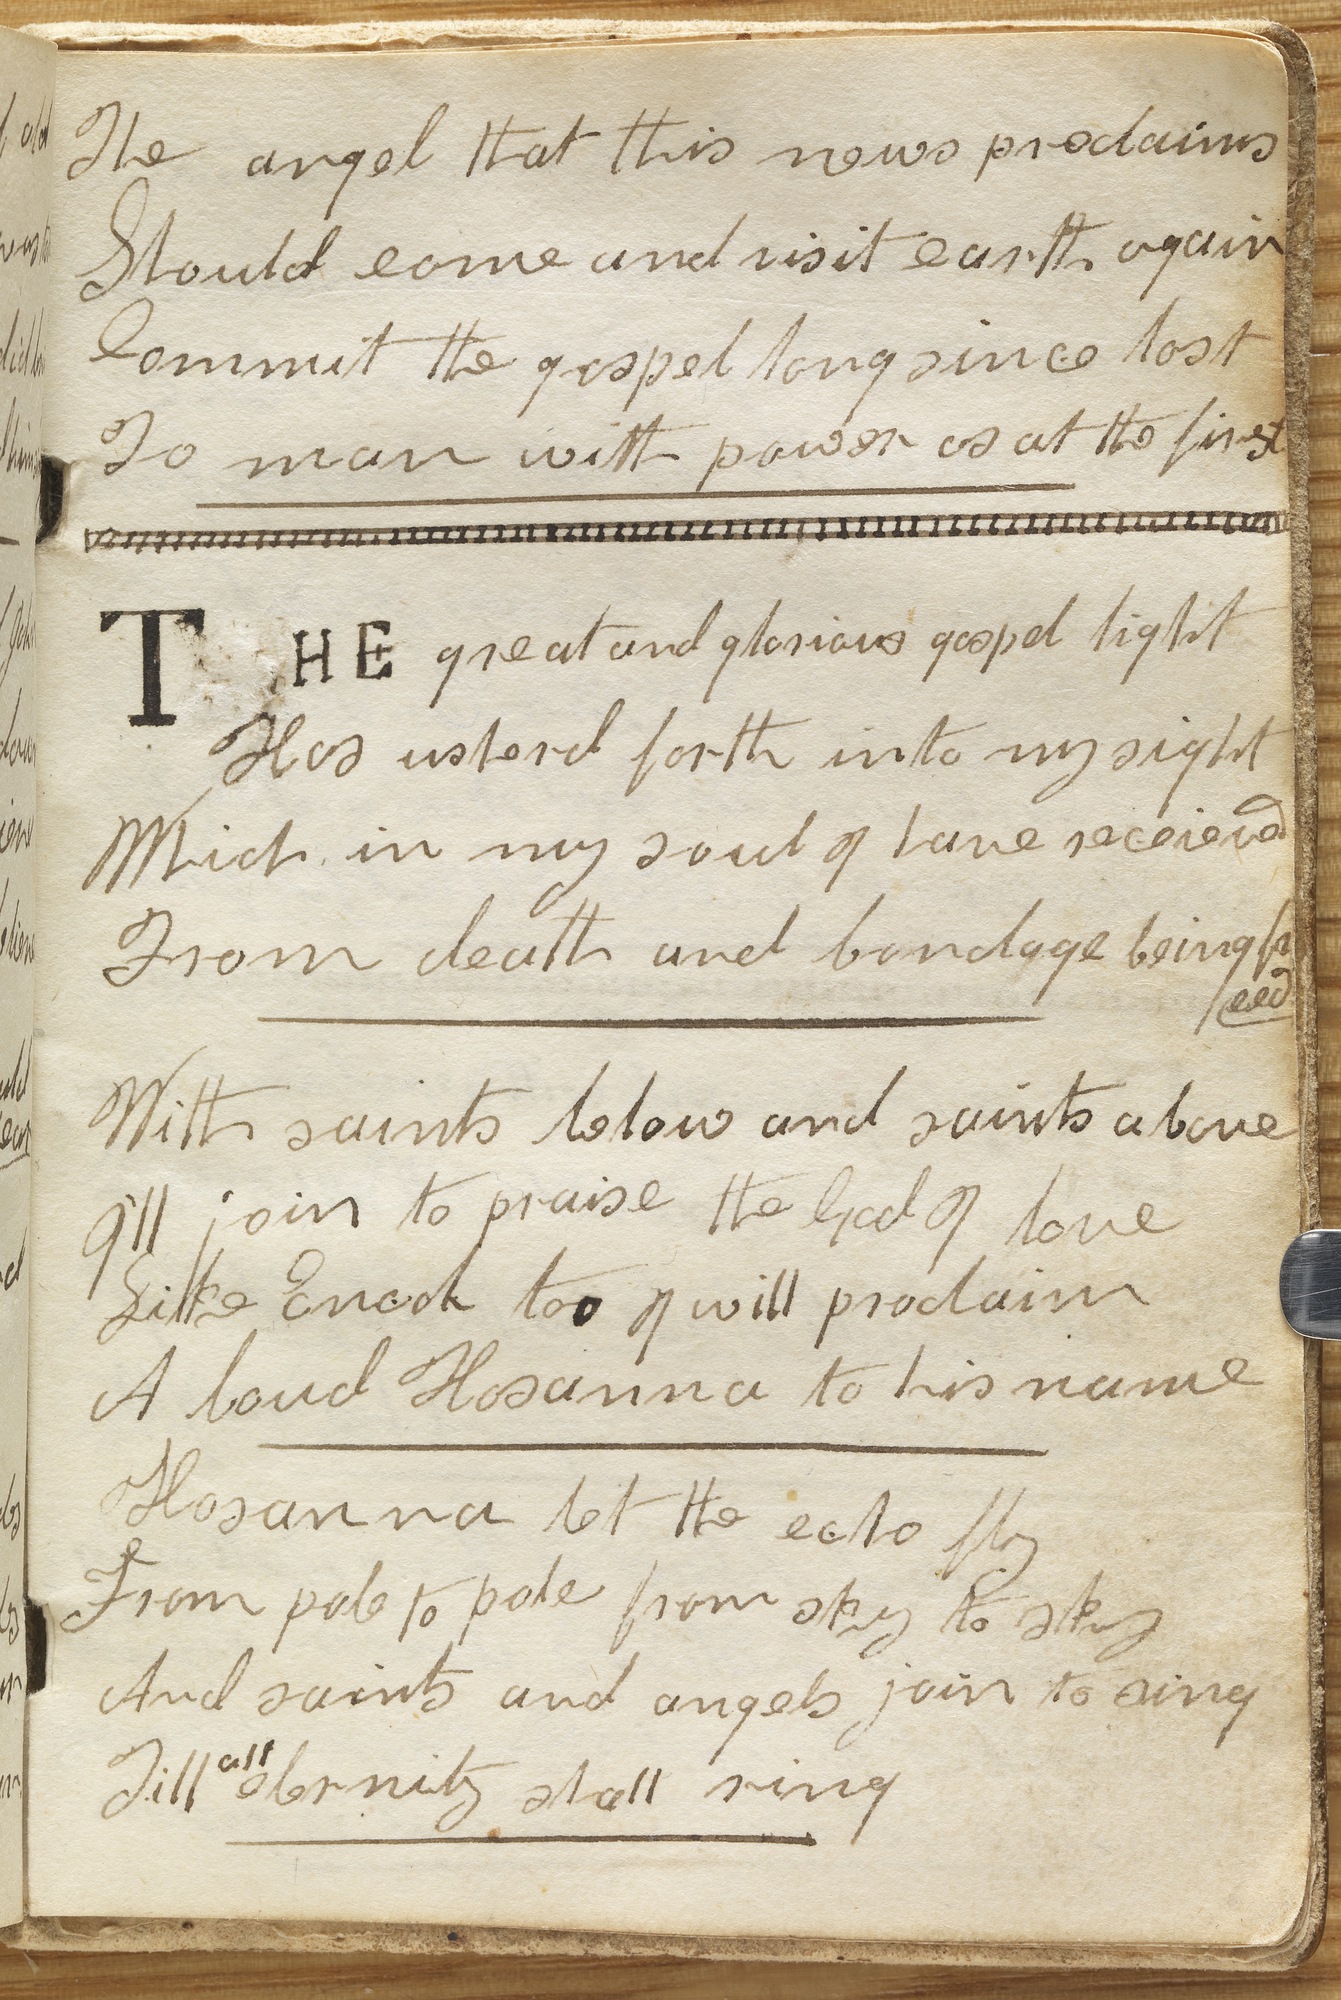 The angel that this news proclaims
Should come and visit earth again
Commit the gospel long since lost
To man with power as at the first
THE great and glorious gospel light
Has usherd forth into my sight
Which in my soul I have receieved
From death and bondage being fr
eed
With saints below and saints above
I'll join to praise the God I love
Like Enoch too I will proclaim
A loud Hosanna to his name
Hosanna let the echo fly
From pole to pole from sky to sky
And saints and angels join to sing
Till all eternity shall ring